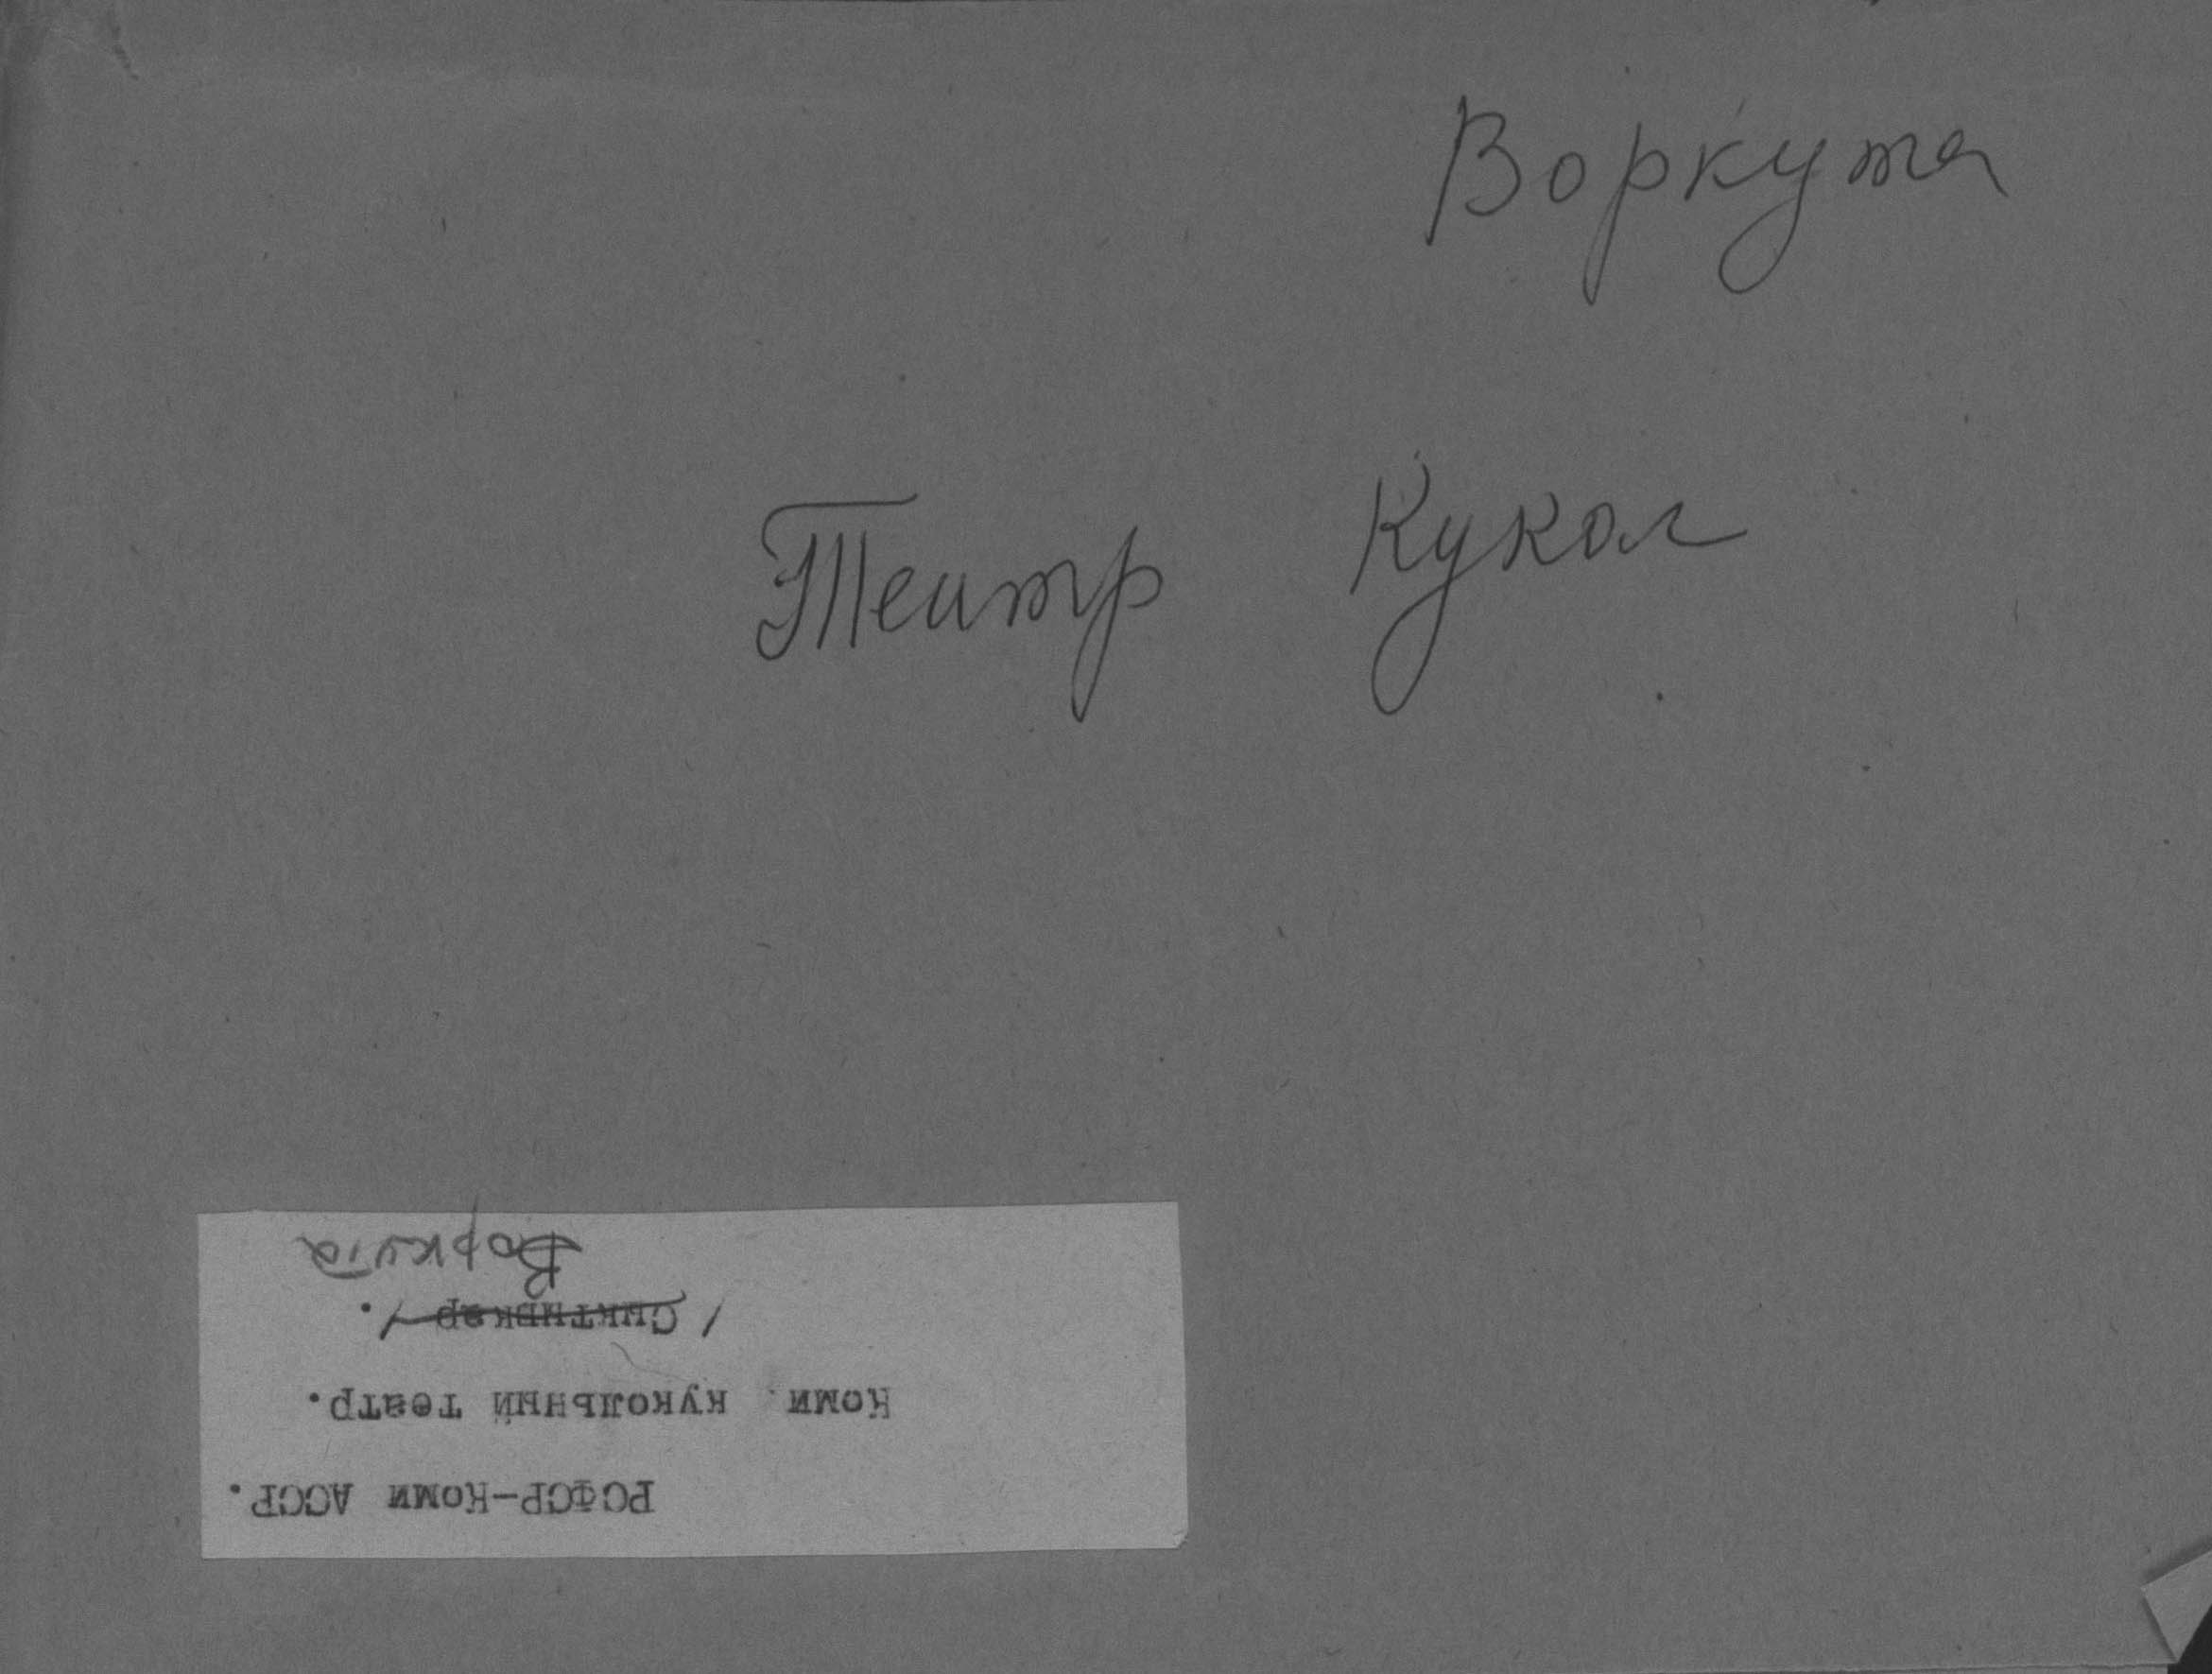 Воркута
Театр Кукол
РСФСР-Коми АССР.
Коми кукольный театр.
/ Сыктывкар /.
Воркута